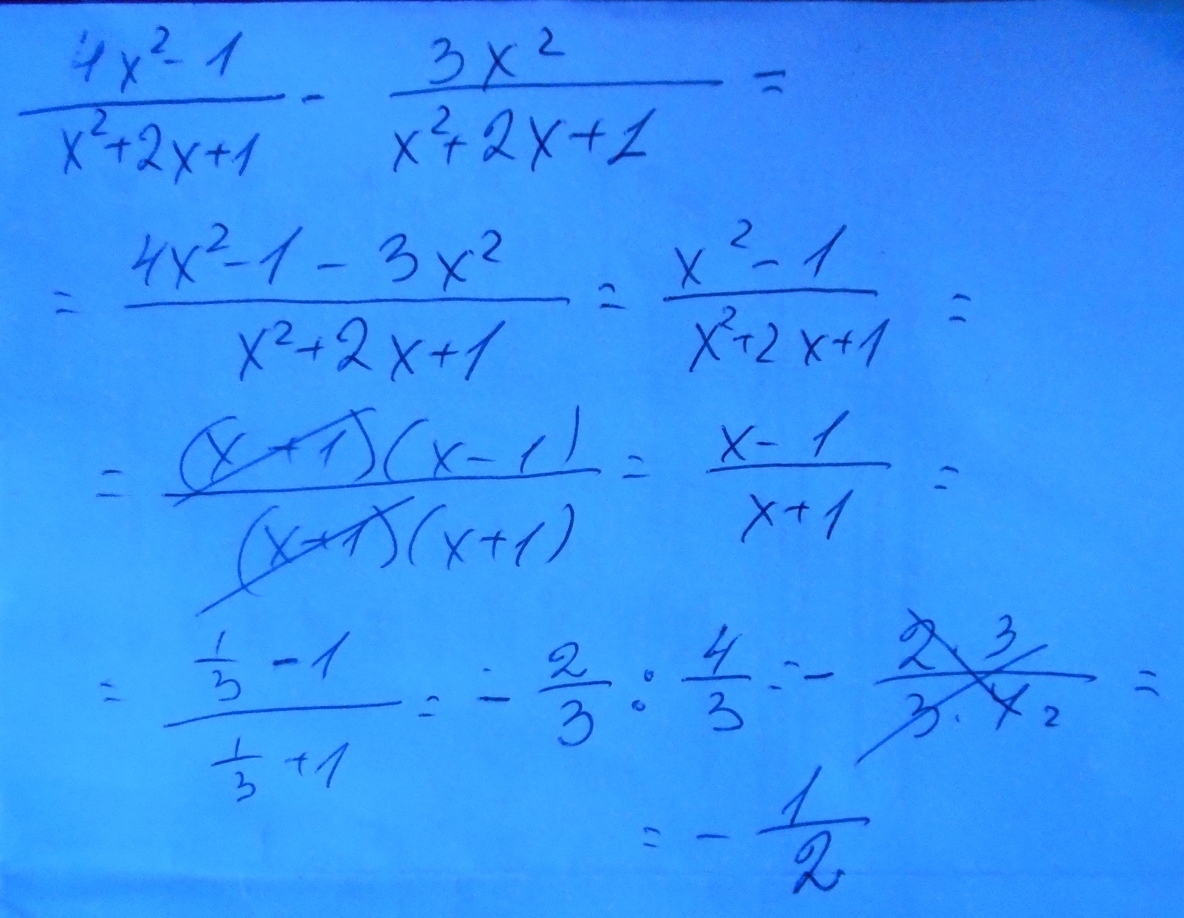 (4x²-1)/(x²+2x+1) - (3x²)/(x²+2x+1) =
= (4x²-1-3x²)/(x²+2x+1) = (x²-1)/(x²+2x+1) =
= ((x+1)(x-1))/((x+1)(x+1)) = (x-1)/(x+1) =
= (1/3 -1)/(1/3 +1) = - 2/3 : 4/3 = - (2·3)/(3·4 2) =
= - 1/2